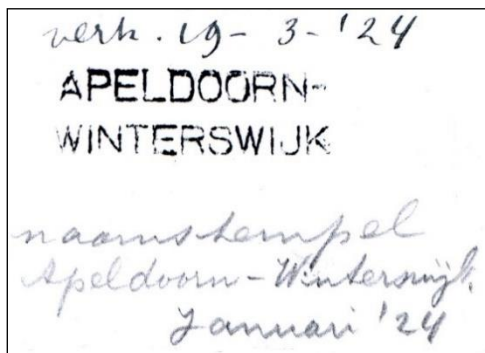 verk. 19-3-'24
APELDOORN-
WINTERSWIJK
naamstempel
Apeldoorn-Winterswijk
Januari '24